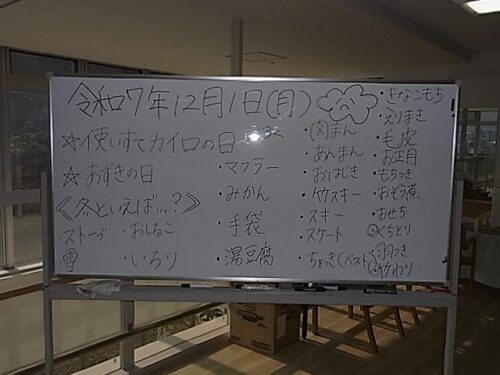 令和7年12月1日(月)
☆使いすてカイロの日
☆あずきの日
《冬といえば…?》
ストーブ
雪
・おしるこ
・いろり
・マフラー
・みかん
・手袋
・湯豆腐
・肉まん
・あんまん
・おはじき
・竹スキー
・スキー
・スケート
・ちゃっき(ベスト)
・きなこもち
・えりまき
・毛皮
・お正月
・もちつき
・おぞう煮
・おせち
くちとり
羽つき